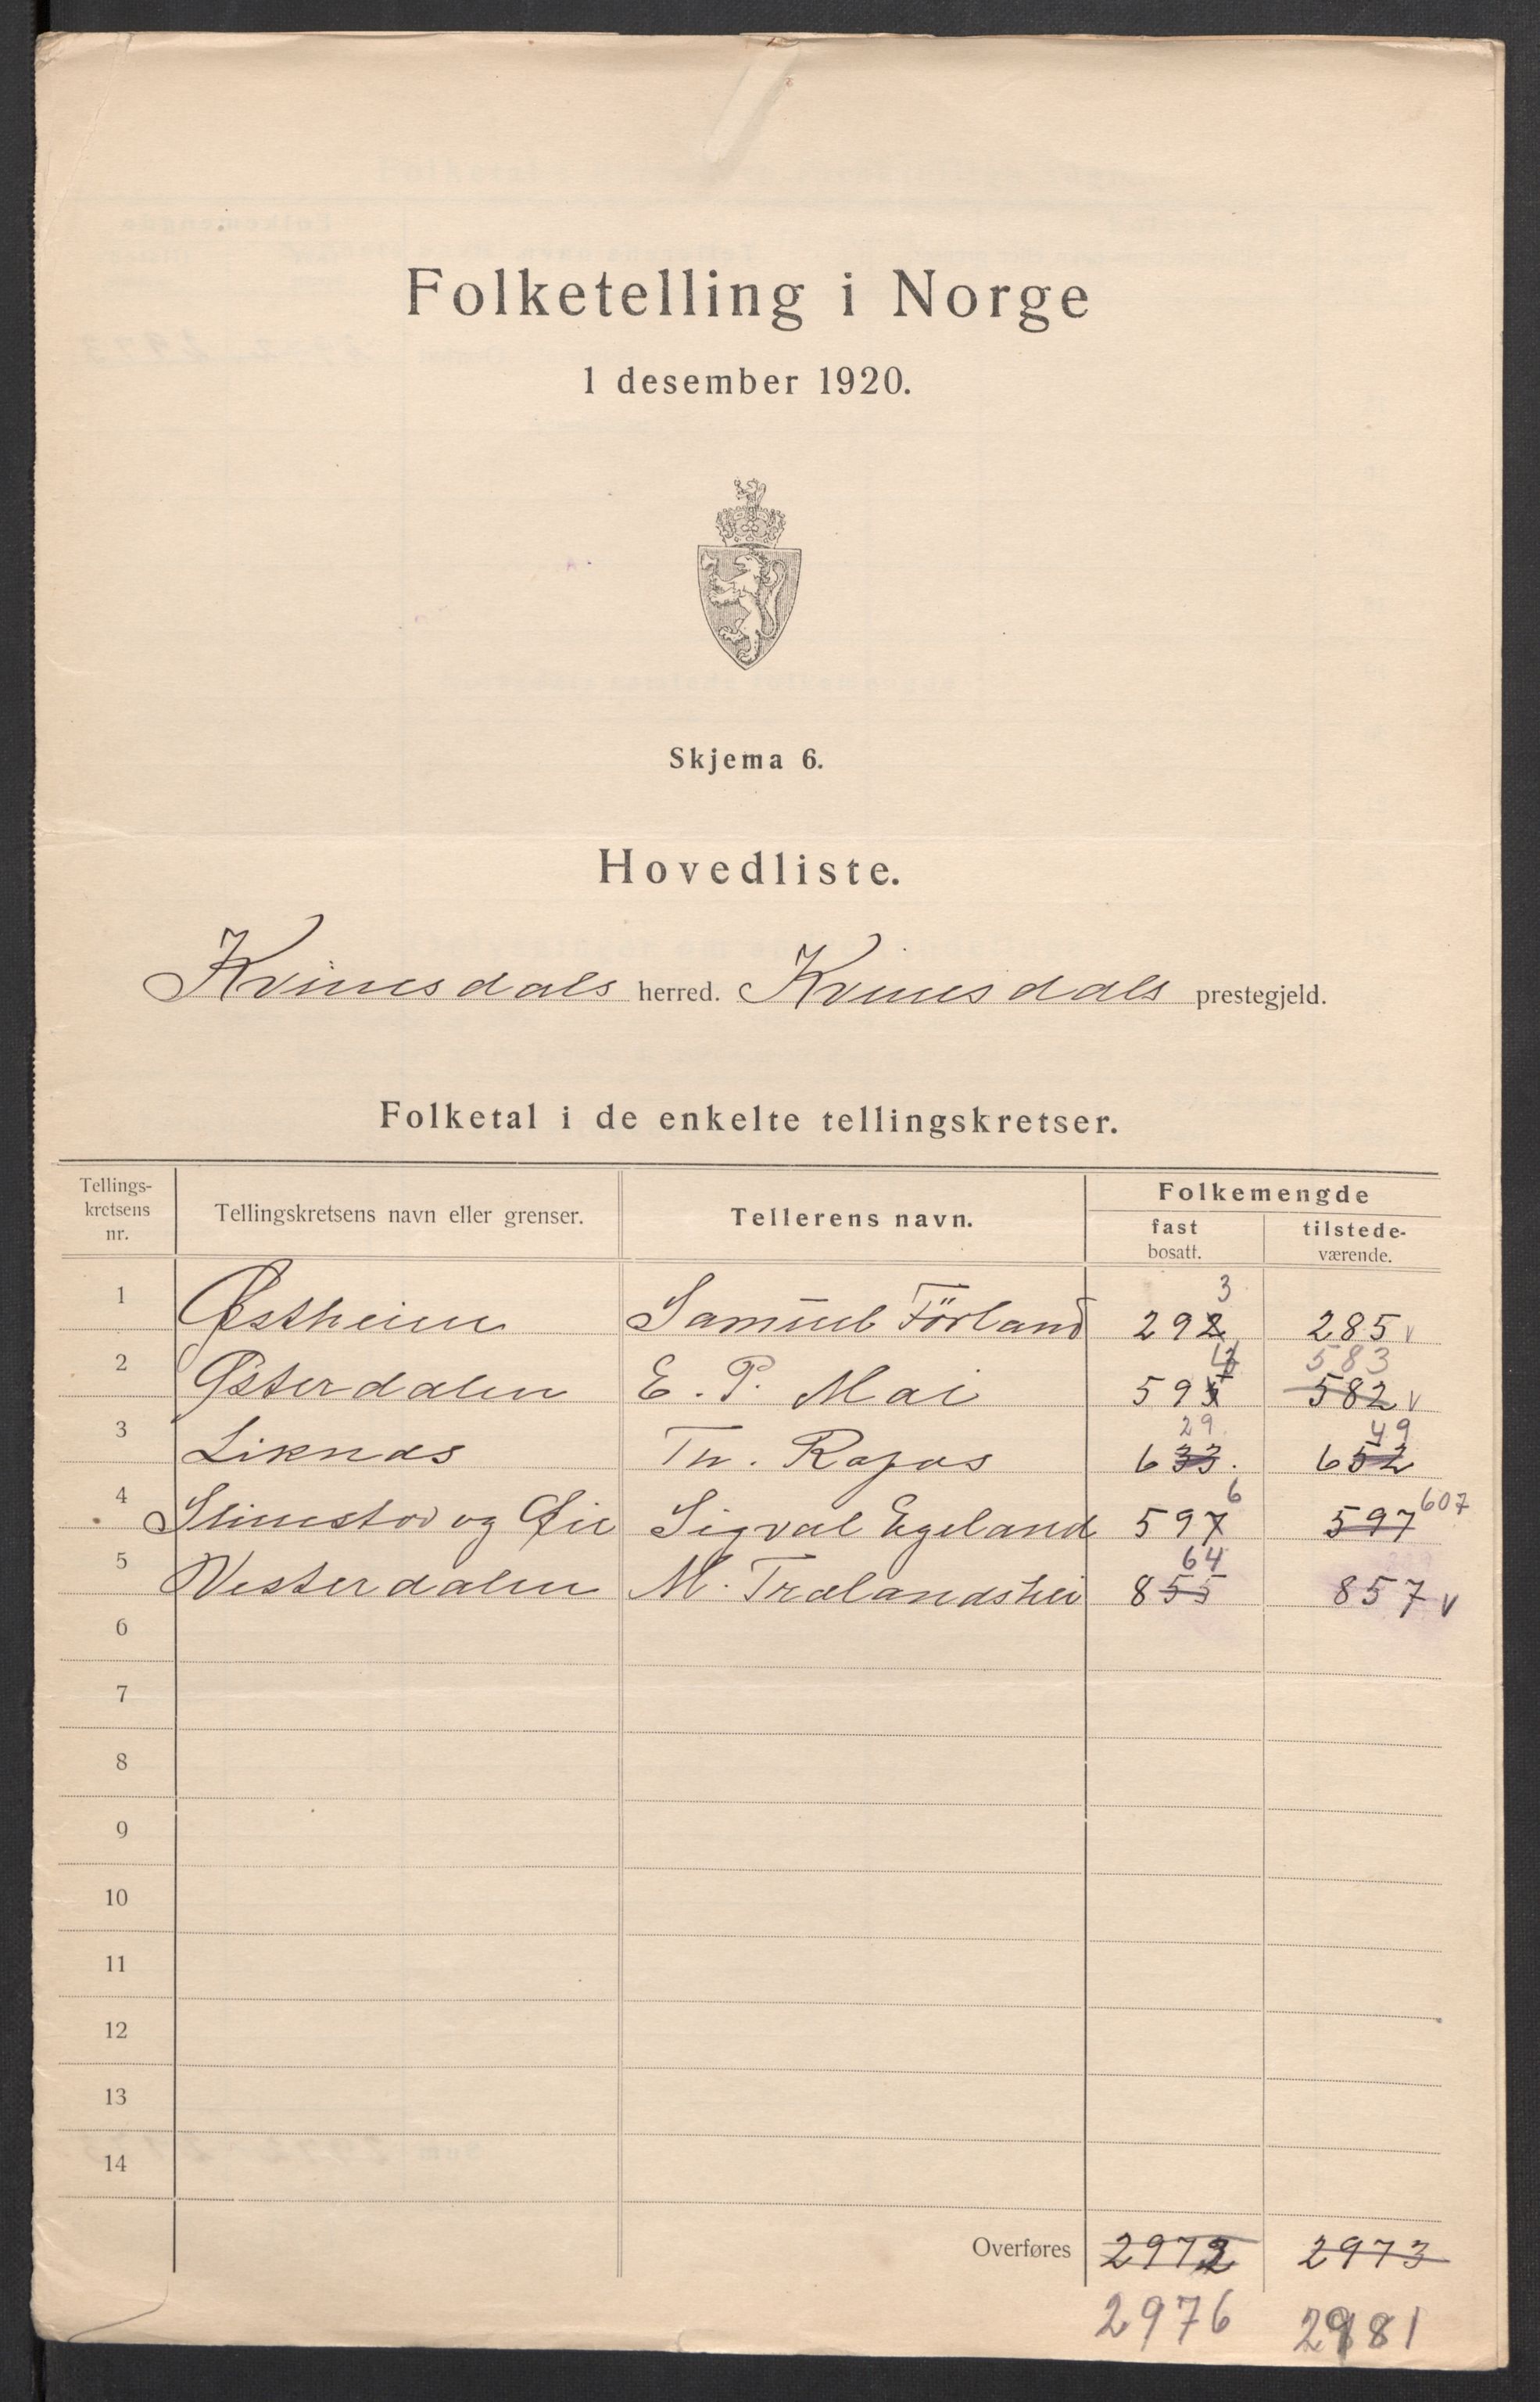 Folketelling i Norge
1 desember 1920.
Skjema 6.
Hovedliste.
Kvinesdals herred. Kvinesdals prestegjeld.
Folketal i de enkelte tellingskretser.
Tellings-
kretsens
nr.
Tellingskretsens navn eller grenser.
Tellerens navn.
Folkemengde
fast
bosatt.
tilstede-
værende.
3
1 Østheim Samuel Förland 292 285 v
583
2 Østerdalen E. P. Mai 59 582 v
29 49
3 Liknæs 633. 652
6 607
4 og Øie Sigval Egeland 597 597
64
5 Vesterdalen M. Trælandshei 855 857 v
6
7
8
9
10
11
12
13
14
Overføres 2972 2973
2976 2981